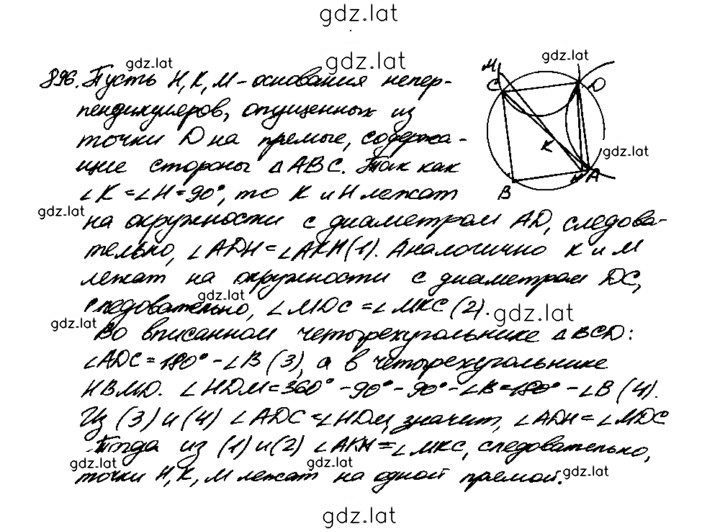 gdz.lat
gdz.lat
896. Пусть H, K, M - основания непер-
пендикуляров, опущенных из
точки D на прямые, содержа-
щие стороны ΔABC. Так как
∠K = ∠H = 90°, то K и H лежат
gdz.lat
на окружности с диаметром AD, следова-
тельно, ∠ADH = ∠AKH (1). Аналогично K и M
лежат на окружности с диаметром DC,
gdz.lat
следовательно, ∠MDC = ∠MKC (2).
gdz.lat
gdz.lat
Во вписанном четырехугольнике ABCD:
∠ADC = 180° - ∠B (3), а в четырехугольнике
HBMD. ∠HDM = 360° - 90° - 90° - ∠B = 180° - ∠B (4).
Из (3) и (4) ∠ADC = ∠HDM, значит, ∠ADH = ∠MDC
Тогда из (1) и (2) ∠AKH = ∠MKC, следовательно,
gdz.lat
gdz.lat
gdz.lat
точки H, K, M лежат на одной прямой.
gdz.lat
gdz.lat
M
C
D
K
gdz.lat
B
H
A